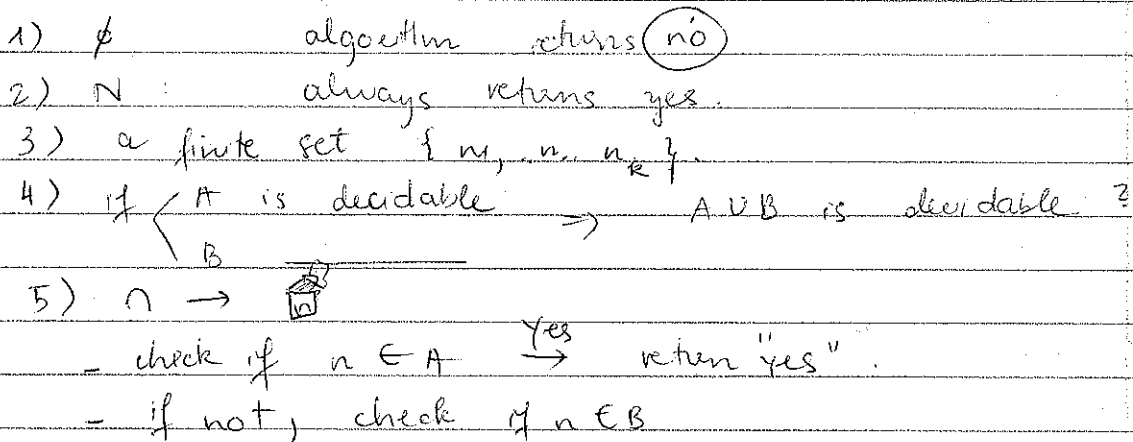 1) ∅ algorithm returns no
2) N : always returns yes.
3) a finite set { n1, .. n.. nk }.
4) if A is decidable → A ∪ B is decidable ?
B
5) ∩ → n
- check if n ∈ A Yes → return "yes".
- if not, check if n ∈ B